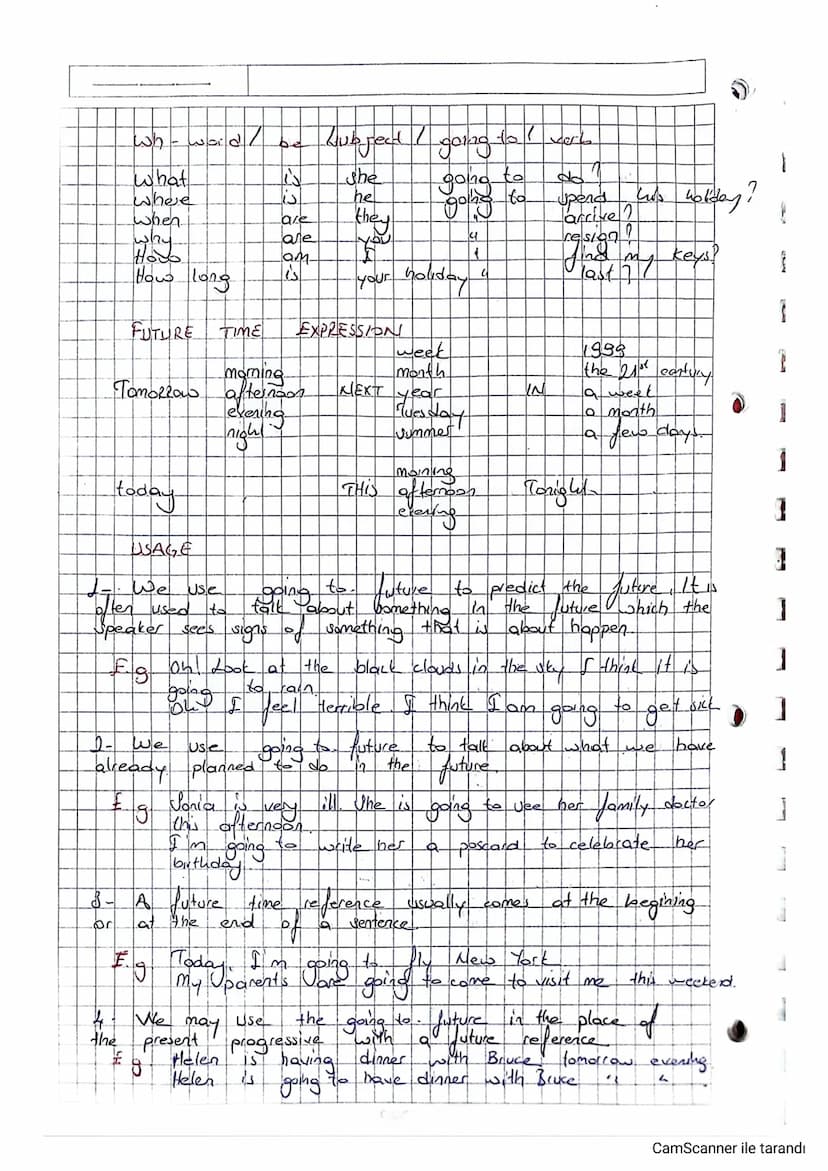 Wh-word / be Subject / going to / verb
What is she going to do?
Where is he going to spend his holiday?
When are they " arrive?
Why are you " resign?
How am I " find my keys?
How long is your holiday " last?
FUTURE TIME EXPRESSION
week 1999
morning month the 21st century
Tomorrow afternoon NEXT year IN a week
evening Tuesday a month
night summer a few days.
morning
today THIS afternoon Tonight
evening
USAGE
1-. We use going to. future to predict the future. It is
often used to talk about something in the future which the
speaker sees signs of something that is about happen.
E.g. Oh! Look at the black clouds in the sky I think it is
going to rain.
Oh I feel terrible. I think I am going to get sick
2- We use going to. future to talk about what we have
already planned to do in the future.
E.g. Sonia is very ill. She is going to see her family doctor
this afternoon.
I'm going to write her a poscard to celebrate her
birthday.
3- A future time reference usually comes at the begining
or at the end of a sentence.
E.g. Today. I'm going to fly New York
My parents are going to come to visit me this weekend.
4- We may use the going to. future in the place of
the present progressive with a future reference
E.g. Helen is having dinner with Bruce tomorrow evening.
Helen is going to have dinner with Bruce " " .
CamScanner ile tarandı